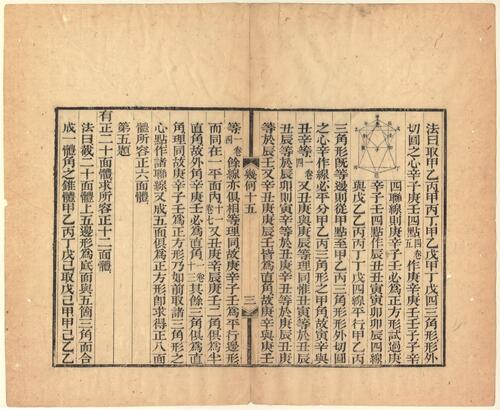 法曰取甲乙丙甲丙丁甲乙戊甲丁戊四三角形形外
切圜之心庚辛壬子四點作庚辛庚壬壬子子辛
四聯線則庚辛子壬必為正方形試過庚
辛子壬四點作辰丑丑寅寅卯卯辰四線
與戊乙乙丙丙丁丁戊四線平行甲乙丙
三角形旣等邊則從甲點至甲乙丙三角形外切圜
之心辛作線必平分甲乙丙三角形之甲角故寅辛與
丑辛等又庚辰與庚丑等理同惟丑寅
丑辰等於辰卯則寅辛等於辛丑等於丑庚等於庚辰
等於辰壬又辛丑庚庚辰壬皆為直角故庚辛與庚壬
等餘線亦俱相等理同故庚辛子壬為平行邊形
而同在一平面內又丑庚辛辰庚壬二角俱為半
直角故外角辛庚壬必為直角其餘三角俱為直
角理同故庚辛子壬為正方形乃如前取諸三角形之
心點作諸聯線又成五面俱為正方形卽求得正八面
體所容正六面體
第五題
有正二十面體求所容正十二面體
法曰觀二十面體上五邊形為底面與五箇三角面合
成一體角之錐體甲乙丙丁戊己取戊己甲甲己乙乙
幾何十五
三